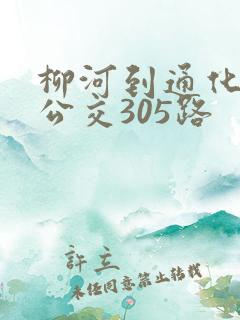 柳河到通化
公交305路
許立
未经同意禁止转载